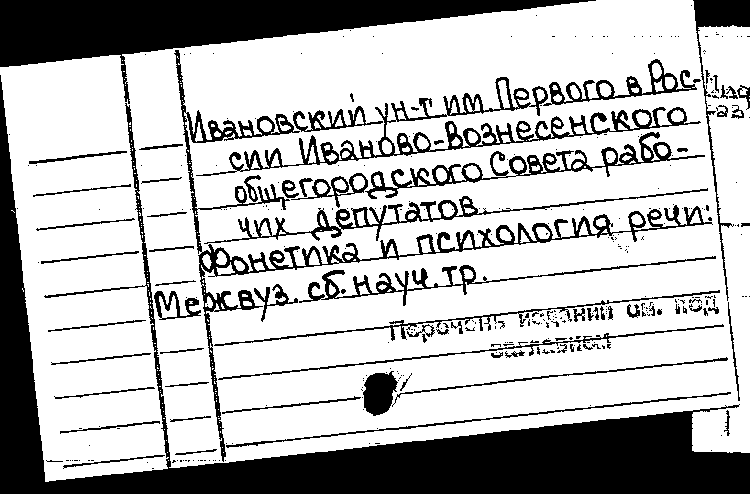 Ивановский ун-т им. Первого в Рос-
сии Иваново-Вознесенского
общегородского Совета рабо-
чих депутатов.
Фонетика и психология речи:
Межвуз. сб. науч. тр.
Перечень изданий см. под
заглавием